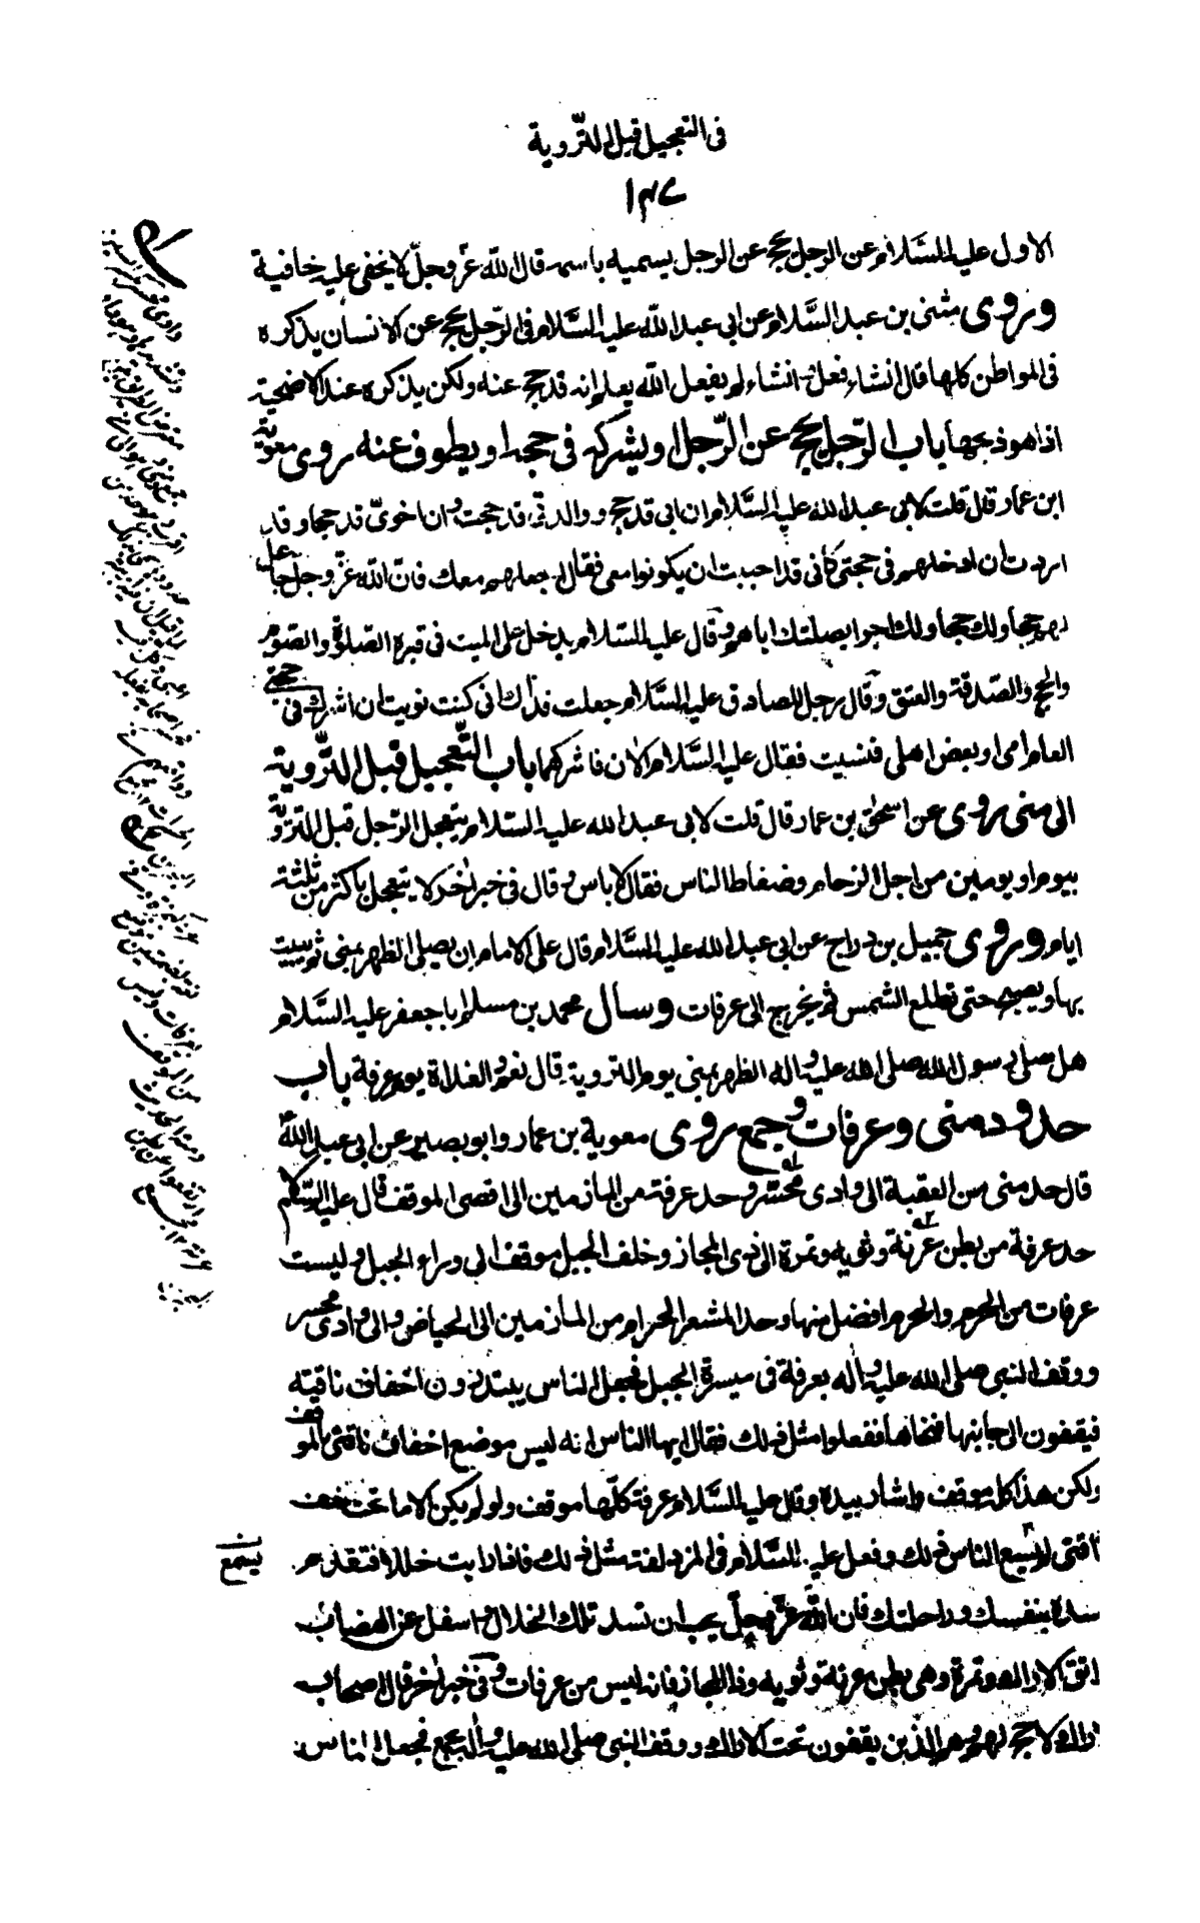 فى التعجيل قبل التّروية
١٣٧
الاول عليه السَّلام عن الرجل يحج عن الرجل يسميه باسمه قال الله عزّ وجلّ لا يخفى عليه خافية
وروى مثنى بن عبد السَّلام عن ابى عبد الله عليه السَّلام فى الرّجل يحج عن الانسان يذكره
فى المواطن كلها قال انشاء فعل وانشاء لم يفعل الله يعلم انه قد حج عنه ولكن يذكره عند الاضحية
اذا هو ذبحها باب الرّجل يحج عن الرّجل او يشركه فى حجه او يطوف عنه روى معوية
ابن عمار قال قلت لابى عبد الله عليه السَّلام ان ابى قد حج ووالدتى قد حجت وان اخوىّ قد حجا وقد
اردت ان ادخلهم فى حجتى كأنى قد احببت ان يكونوا معى فقال اجعلهم معك فانّ الله عزّ وجلّ جاعل
لهم حجا ولك حجا ولك اجرا بصلتك اياهم وقال عليه السّلام يدخل على الميت فى قبره الصّلوة والصّوم
والحج والصّدقة والعتق وقال رجل للصادق عليه السَّلام جعلت فداك انى كنت نويت ان اشرك فى حجتى
العام امى او بعض اهلى فنسيت فقال عليه السَّلام الان فاشركهما باب التّعجيل قبل التّروية
الى منى روى عن اسحق بن عمار قال قلت لابى عبد الله عليه السّلام يتعجل الرّجل قبل التروية
بيوم او يومين من اجل الزحام وضغاط الناس فقال لا باس وقال فى خبر اخر لا يتعجل باكثر من ثلثة
ايام وروى جميل بن دراج عن ابى عبد الله عليه السَّلام قال على الامام ان يصلى الظهر بمنى ثم يبيت
بها ويصبح حتى تطلع الشمس ثم يخرج الى عرفات وسال محمد بن مسلم ابا جعفر عليه السَّلام
هل صلى رسول الله صلى الله عليه واله الظهر بمنى يوم التروية قال نعم والغداة يوم عرفة باب
حدود منى وعرفات وجمع روى معوية بن عمار وابو بصير عن ابى عبد الله
قال حد منى من العقبة الى وادى محسّر وحد عرفة من المازمين الى اقصى الموقف قال عليه السّلام
حد عرفة من بطن عرنة وثويه ونمرة الى ذى المجاز وخلف الجبل موقف الى وراء الجبل وليست
عرفات من الحرم والحرم افضل منها وحد المشعر الحرام من المأزمين الى الحياض والى وادى محسر
ووقف النبى صلى الله عليه واله بعرفة فى ميسرة الجبل فجعل الناس يبتدرون اخفاف ناقته
فيقفون الى جانبها فنحاها ففعلوا مثل ذلك فقال ايها الناس انه ليس موضع اخفاف ناقتى بالموقف
ولكن هذا كله موقف واشار بيده وقال عليه السَّلام عرفة كلّها موقف ولو لم يكن الا ما تحت خف
ناقتى لم يسع الناس ذلك وفعل عليه السَّلام فى المزدلفة مثل ذلك فاذا رايت خللا فتقدم
يسمع
سده بنفسك وراحلتك فان الله عزّ وجلّ يحب ان تسد تلك الخلال واسفل عن الهضاب
اتق الاراك ونمرة وهى بطن عرنة وثويه وذا المجاز فانه ليس من عرفات وفى خبر اخر قال اصحاب
الاراك لا حج لهم وهم الذين يقفون تحت الاراك ووقف النبى صلى الله عليه واله بجمع فجعل الناس